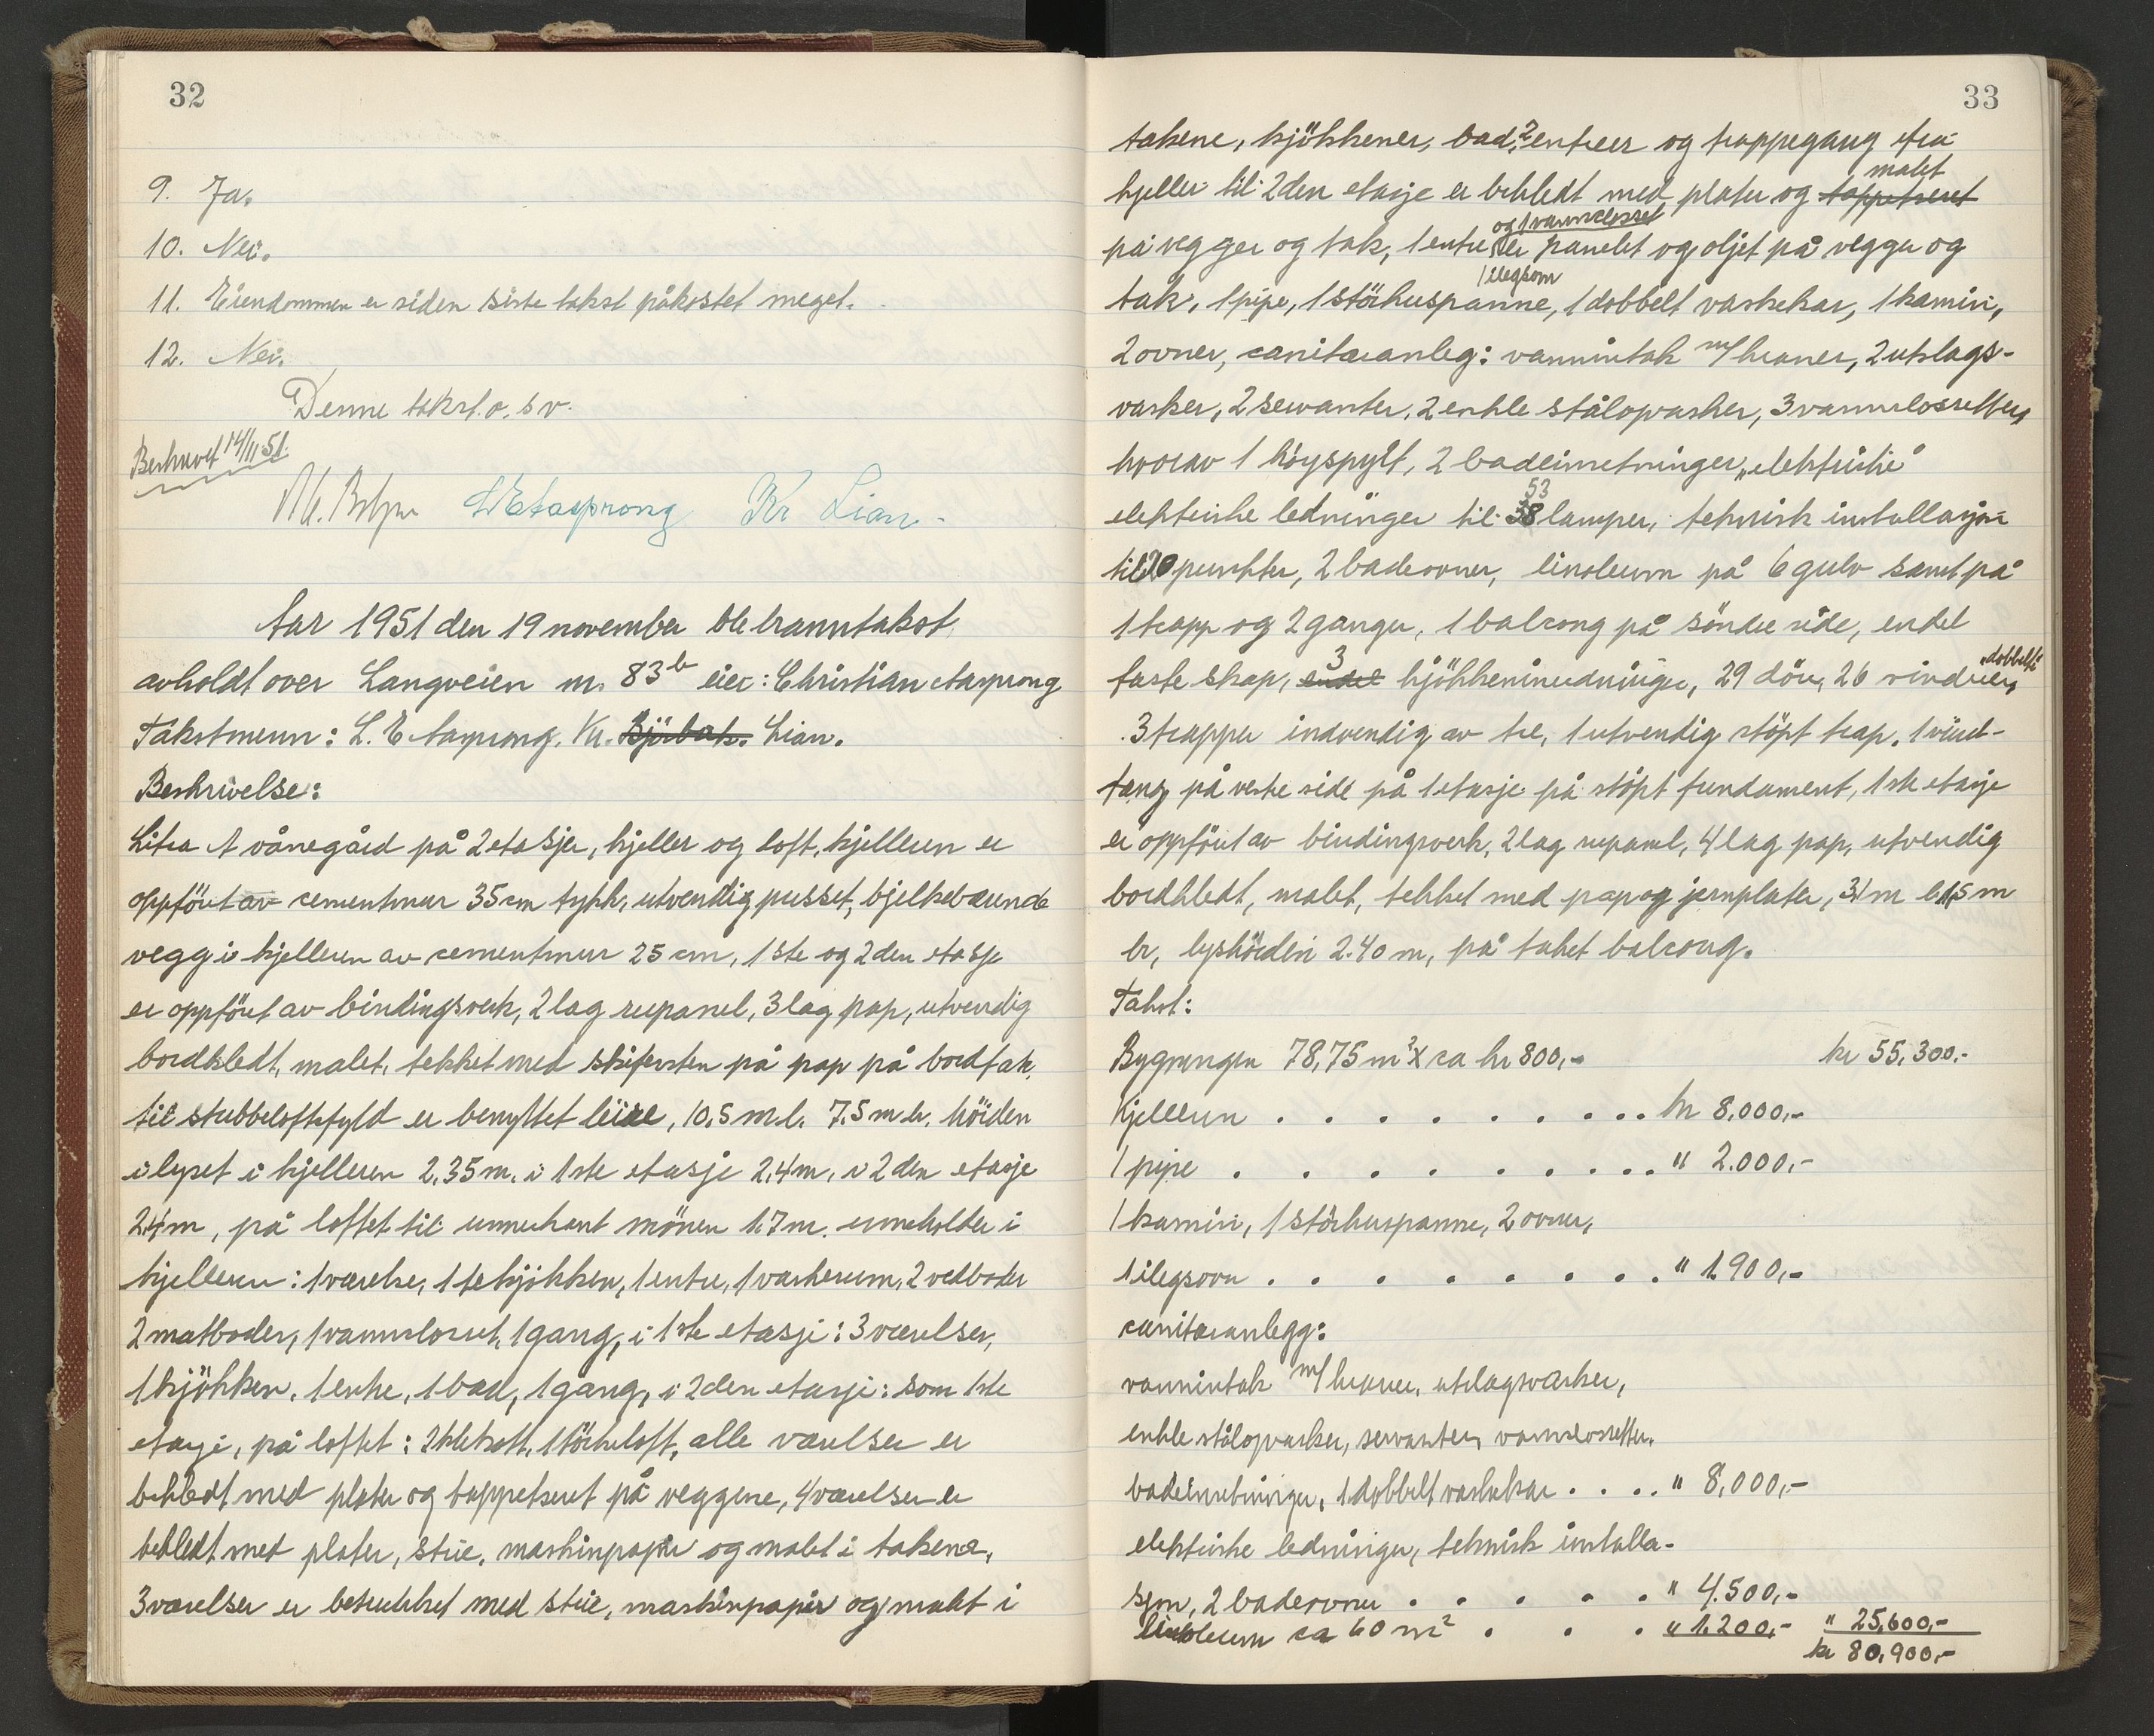 32
9. Ja.
10. Nei.
11. Eiendommen er siden siste takst påkostet meget.
12. Nei.
Denne takst o. s v.
Beskrevet 14/11 51.
Kr Lian.
Aar 1951 den 19 november ble branntakst
avholdt over Langveien nr. 83 b eier: Christian Aasprong
Takstmenn: L. E Aasprong. Kr. Bjørbak. Lian.
Beskrivelse:
Litra A vånegård på 2 etasjer, kjeller og loft, kjelleren er
oppfört av cementmur 35 cm tykk, utvendig pusset, bjelkebærende
vegg i kjelleren av cementmur 25 cm, 1ste og 2den etasje
er oppfört av bindingsverk, 2 lag rupanel, 3 lag pap, utvendig
bordkledt, malet, tekket med skifersten på pap på bordtak,
til stubbeloftsfyld er benyttet leire, 10,5 m l. 7,5 m br. höiden
i lyset i kjelleren 2,35 m. i 1ste etasje 2,4 m. i 2den etasje
2,4 m, på loftet til unnerkant mönen 1,7 m. inneholder i
kjelleren: 1 værelse, 1 tekjökken, 1 entre, 1 vaskerum, 2 vedboder
2 matboder, 1 vannclosett, 1 gang, i 1ste etasje: 3 værelser,
1 kjökken, 1 entre, 1 bad, 1 gang, i 2den etasje: som 1ste
etasje, på loftet: 2 klekott, 1 törkeloft, alle værelser er
bekledt med plater og tappetseret på veggene, 4 værelser er
bekledt med plater, strie, maskinpapir og malet i takene,
3 værelser er betrukket med strie, maskinpapir og malet i
33
takene, kjökkener, bad, 2 entreer og trappegang fra
malet
kjeller til 2den etasje er bekledt med plater og tappetseret
og 1 vannclosset
på vegger og tak, 1 entre er panelet og oljet på vegger og
1 ilegsovn
tak, 1 pipe, 1 störhuspanne, 1 dobbelt vaskekar, 1 kamin,
2 ovner, sanitæranleg: vanninntak m/ kraner, 2 utslags-
vasker, 2 servanter, 2 enkle stålopvasker, 3 vannclossetter,
hvorav 1 höyspylt, 2 badeinnretninger, „elektriske"
53
elektriske ledninger til 38 lamper, teknisk installasjon
til 20 punkter, 2 badeovner, linoleum på 6 gulv samt på
1 trapp og 2 ganger, 1 balcong på söndre side, endel
3 „dobbelt"
faste skap, endel kjökkeninnredninger, 29 dörer, 26 vinduer,
3 trapper indvendig av tre, 1 utvendig stöpt trap. 1 vind-
fang på vestre side på 1 etasje på stöpt fundament, 1ste etasje
er oppfört av bindingsverk, 2 lag rupanel, 4 lag pap, utvendig
bordkledt, malet, tekket med pap og jernplater, 3,1 m l. 1,5 m
br, lyshöiden 2.40 m, på taket balcong.
Takst:
Bygningen 78,75 m² x ca kr 800,- kr 55,300.-
kjelleren . . . . . . . . . . kr 8,000,-
1 pipe . . . . . . . . . . " 2.000,-
1 kamin, 1 störhuspanne, 2 ovner,
1 ilegsovn . . . . . . . . " 1.900,-
sanitæranlegg:
vanninntak m/ kraner, utslagsvasker,
enkle stålopvasker, servanter, vannclossetter,
badeinnretninger, 1 dobbelt vaskekar . . . . " 8,000,-
elektriske ledninger, teknisk installa-
sjon, 2 badeovner . . . . . " 4.500,-
linoleum ca 60 m² . . . " 1.200,- " 25,600,-
kr 80,900,-